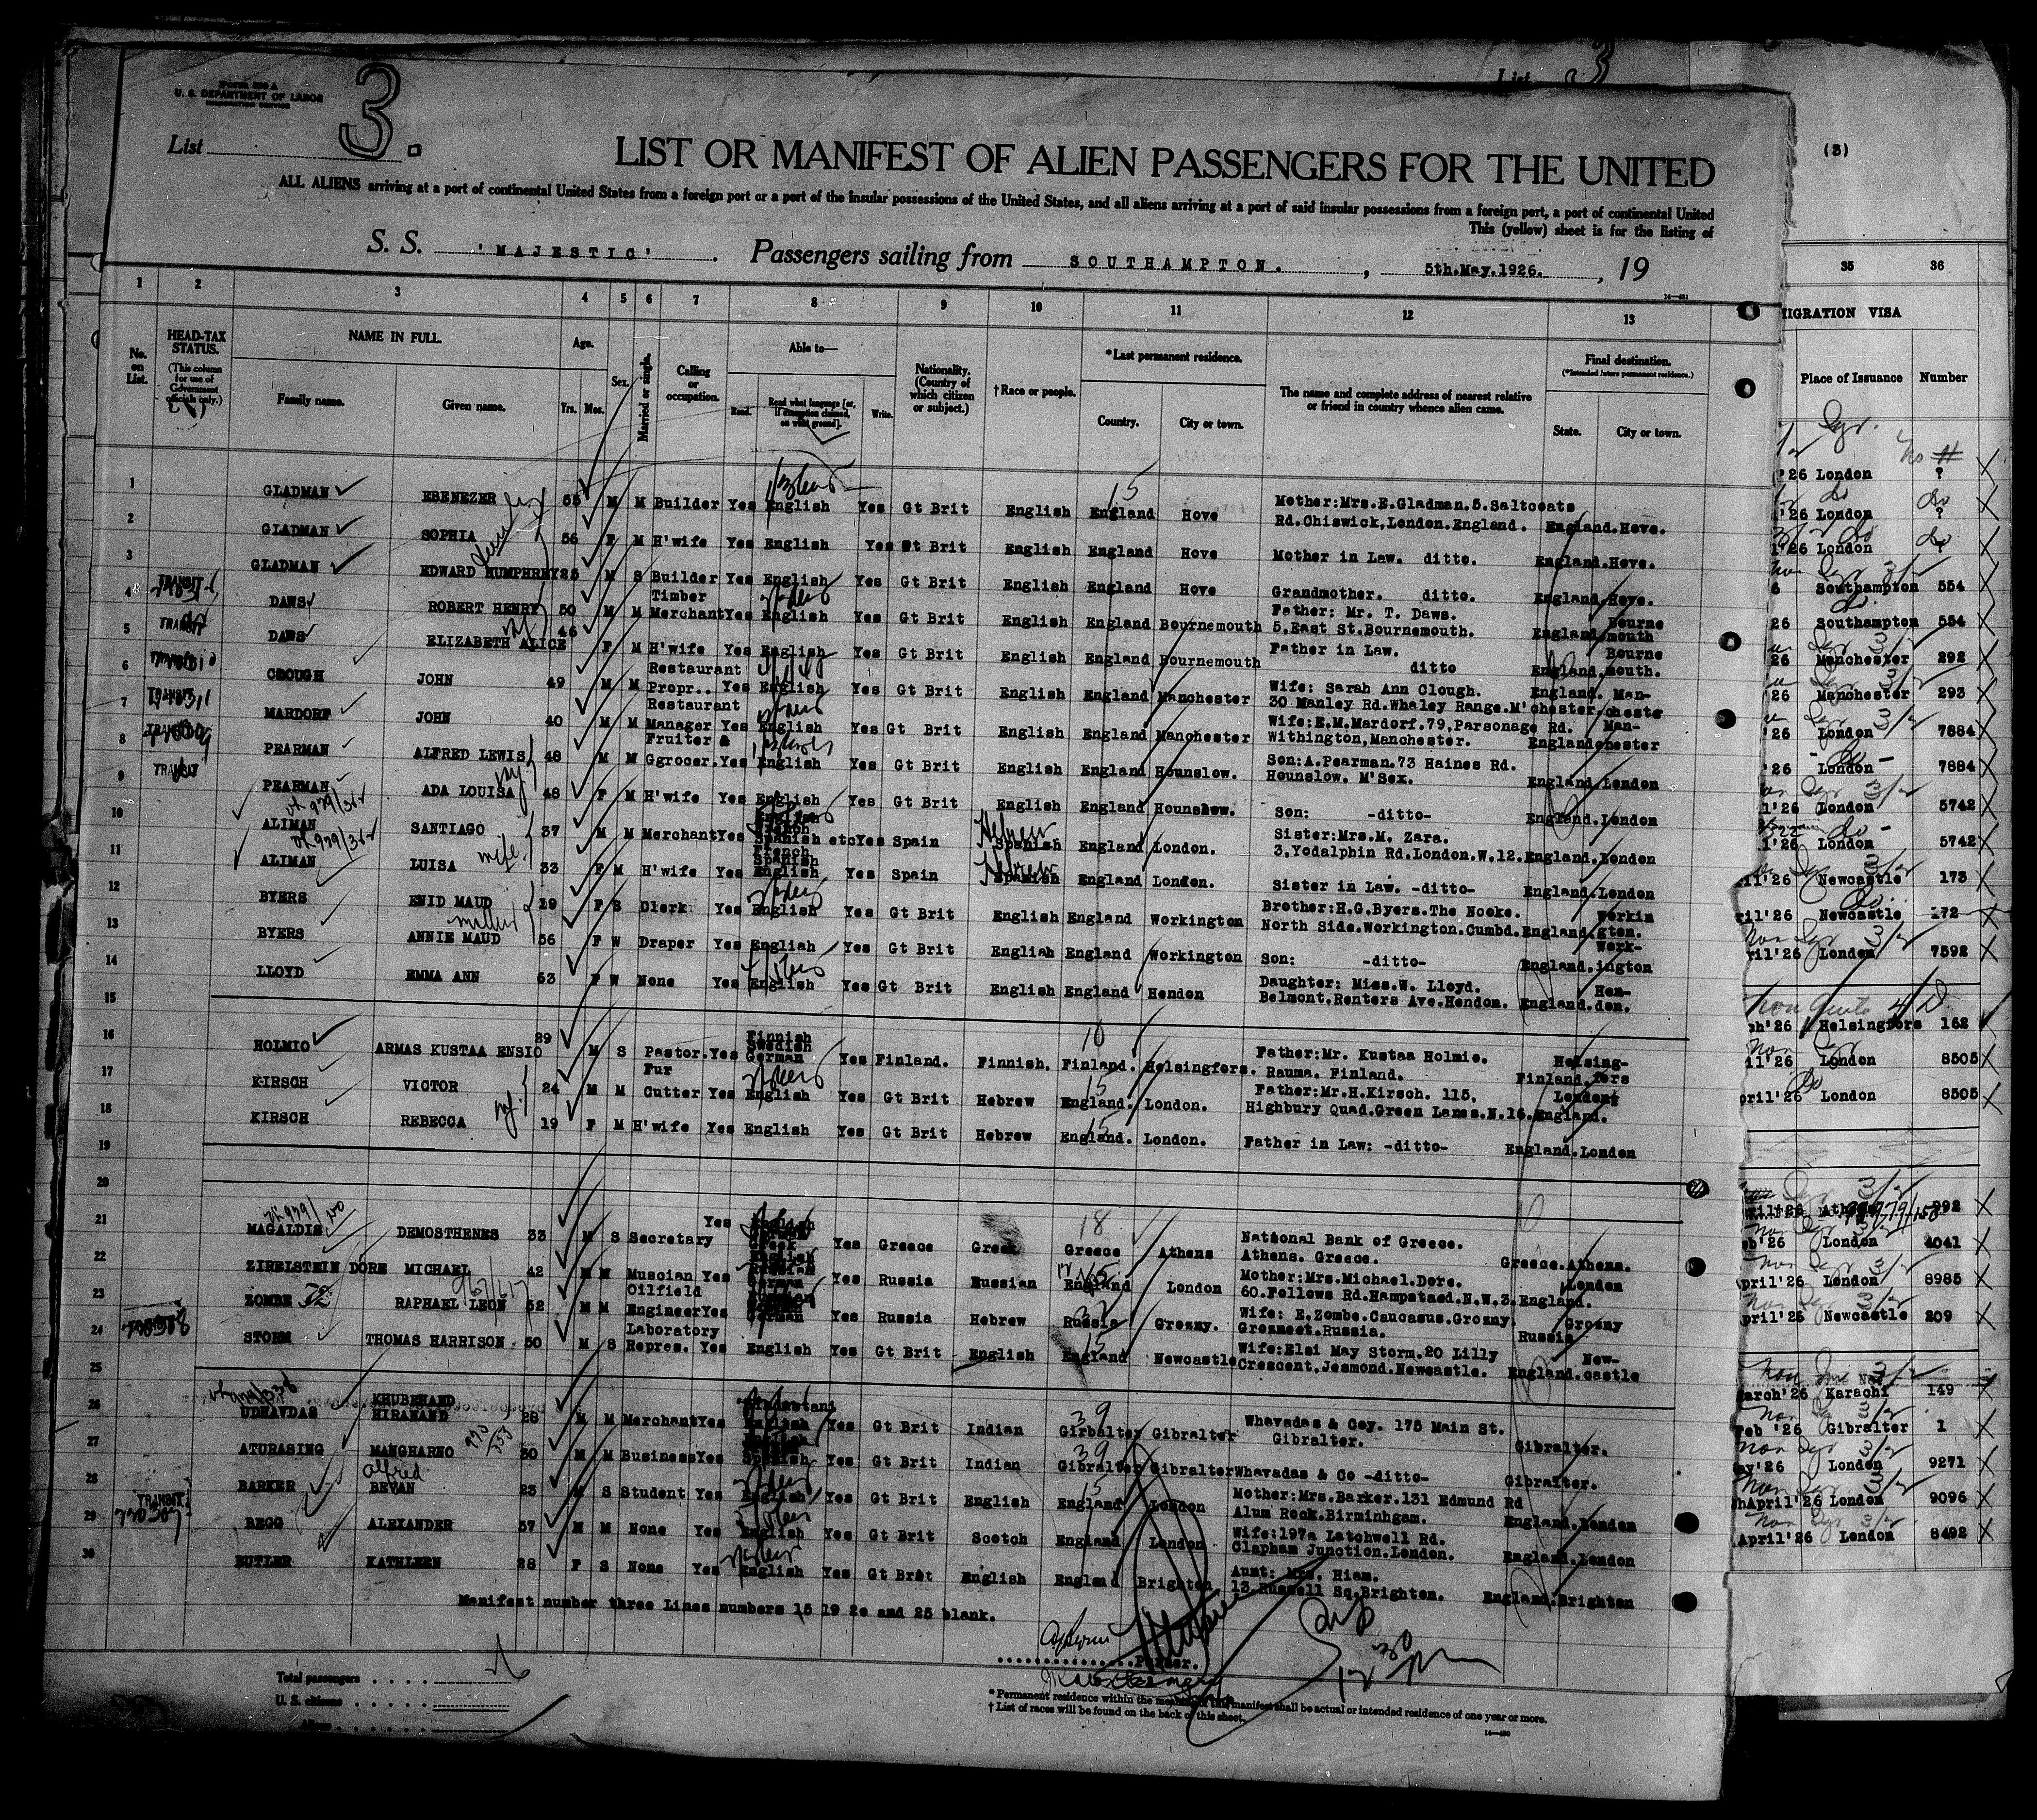 Form 500 A
U. S. DEPARTMENT OF LABOR
IMMIGRATION SERVICE
List 3.
List 3
(3)
LIST OR MANIFEST OF ALIEN PASSENGERS FOR THE UNITED
ALL ALIENS arriving at a port of continental United States from a foreign port or a port of the insular possessions of the United States, and all aliens arriving at a port of said insular possessions from a foreign port, a port of continental United
This (yellow) sheet is for the listing of
S. S. 'MAJESTIC'. Passengers sailing from SOUTHAMPTON. , 5th.May.1926. , 19
1 2 3 4 5 6 7 8 9 10 11 12 13 35 36
No. on List.
HEAD-TAX STATUS.
(This column for use of Government officials only.)
NAME IN FULL.
Family name. Given name.
Age.
Yrs. Mos.
Sex.
Married or single.
Calling or occupation.
Able to—
Read. Read what language [or, if exemption claimed, on what ground]. Write.
Nationality. (Country of which citizen or subject.)
†Race or people.
*Last permanent residence.
Country. City or town.
The name and complete address of nearest relative or friend in country whence alien came.
Final destination.
(*Intended future permanent residence.)
State. City or town.
MIGRATION VISA
Place of Issuance Number
1 GLADMAN EBENEZER 55 M M Builder Yes English Yes Gt Brit English England Hove Mother:Mrs.E.Gladman.5.Saltcoats Rd.Chiswick,London.England. England.Hove. London ?
2 GLADMAN SOPHIA 56 F M H'wife Yes English Yes Gt Brit English England Hove Mother in Law. ditto. England.Hove. London ?
3 GLADMAN EDWARD HUMPHREY 25 M S Builder Yes English Yes Gt Brit English England Hove Grandmother. ditto. England.Hove. London
4 TRANSIT DAWS ROBERT HENRY 50 M M Timber Merchant Yes English Yes Gt Brit English England Bournemouth Father: Mr. T. Daws. 5.East St.Bournemouth. England. Bournemouth Southampton 554
5 TRANSIT DAWS ELIZABETH ALICE 46 F M H'wife Yes English Yes Gt Brit English England Bournemouth Father in Law. ditto England. Bournemouth. Southampton 554
6 TRANSIT CLOUGH JOHN 49 M M Restaurant Propr.. Yes English Yes Gt Brit English England Manchester Wife: Sarah Ann Clough. 30 Manley Rd.Whaley Range.M'chester. England. Man-cheste Manchester 292
7 TRANSIT MARDORF JOHN 40 M M Restaurant Manager Yes English Yes Gt Brit English England Manchester Wife:E.M.Mardorf.79,Parsonage Rd. Withington,Manchester. England Man-chester Manchester 293
8 TRANSIT PEARMAN ALFRED LEWIS 48 M M Fruiter & Ggrocer. Yes English Yes Gt Brit English England Hounslow. Son:A.Pearman.73 Haines Rd. Hounslow. M'Sex. England.London London 7884
9 TRANSIT PEARMAN ADA LOUISA 48 F M H'wife Yes English Yes Gt Brit English England Hounslow. Son: -ditto- England.London London 7884
10 ALIMAN SANTIAGO 37 M M Merchant Yes English French Spanish etc Yes Spain Hebrew Spanish England London. Sister:Mrs.M. Zara. 3,Yodalphin Rd.London.W.12. England.London London 5742
11 ALIMAN LUISA wife 33 F M H'wife Yes French Spanish English Yes Spain Hebrew Spanish England London. Sister in Law. -ditto- England.London London 5742
12 BYERS ENID MAUD 19 F S Clerk Yes English Yes Gt Brit English England Workington Brother:H.G.Byers.The Nooke. North Side.Workington.Cumbd. England. Workington. Newcastle 173
13 BYERS ANNIE MAUD mother 56 F W Draper Yes English Yes Gt Brit English England Workington Son: -ditto- England. Work-ington Newcastle 172
14 LLOYD EMMA ANN 63 F W None Yes English Yes Gt Brit English England Hendon Daughter: Miss.W. Lloyd. Belmont.Renters Ave.Hendon. England. Hen-den. London 7592
15
16 HOLMIO ARMAS KUSTAA ENSIO 29 M S Pastor. Yes Finnish Swedish German Yes Finland. Finnish. Finland. Helsingfors. Father:Mr. Kustaa Holmio. Rauma. Finland. Finland. Helsing-fors Helsingfors 162
17 KIRSCH VICTOR 24 M M Fur Cutter Yes English Yes Gt Brit Hebrew England. London. Father:Mr.H.Kirsch. 115, Highbury Quad.Green Lanes.N.16. England. London; London 8505
18 KIRSCH REBECCA 19 F M H'wife Yes English Yes Gt Brit Hebrew England. London. Father in Law: -ditto- England.London London 8505
19
20
21 MAGALDIS DEMOSTHENES 33 M S Secretary Yes Greek Yes Greece Greek Greece Athens National Bank of Greece. Athens. Greece. Greece.Athens. Athens 992
22 ZIRELSTEIN DORE MICHAEL 42 M M Muscian Yes English Russian German Yes Russia Russian England London Mother:Mrs.Michael.Dore. 60.Fellows Rd.Hampstaed.N.W.3. England. London London 4041
23 ZOMBE RAPHAEL LEON 52 M M Oilfield Engineer Yes German Yes Russia Hebrew Russia Grosny. Wife: E.Zombe.Caucasus.Grosny. Grosneet.Russia. Russia Grosny London 8985
24 STORM THOMAS HARRISON. 50 M S Laboratory Repres. Yes English Yes Gt Brit English England Newcastle Wife:Elsi May Storm.20 Lilly Crescent.Jesmond.Newcastle. England. New-castle Newcastle 209
25
26 UDHAVDAS KHUBEHAND HIRANAND 28 M M Merchant Yes Hindustani English Yes Gt Brit Indian Girbalter Gibralter Whavadas & Coy. 175 Main St. Gibralter. Gibralter. Karachi 149
27 ATURASING MANGHARNO 30 M M Business Yes Spanish Yes Gt Brit Indian Gibralter Gibralter Whavadas & Co -ditto- Gibralter. Gibralter 1
28 BARKER Alfred BEVAN 23 M S Student Yes English Yes Gt Brit English England London Mother:Mrs.Barker.131 Edmund Rd Alum Rock.Birminhgam. England.London London 9271
29 TRANSIT BEGG ALEXANDER 57 M M None Yes English Yes Gt Brit Scotch England London Wife:197a Latchwell Rd. Clapham Junction.London. England.London London 9096
30 BUTLER KATHLEEN 28 F S None Yes English Yes Gt Brit English England Brighton Aunt: Mrs. Hiam. 13 Russell Sq.Brighton. England.Brighton London 8492
Manifest number three Lines numbers 15 19 20 and 25 blank.
Purser.
12 30 Pm
Total passengers
U. S. citizens
Aliens
* Permanent residence within the meaning of this manifest shall be actual or intended residence of one year or more.
† List of races will be found on the back of this sheet.